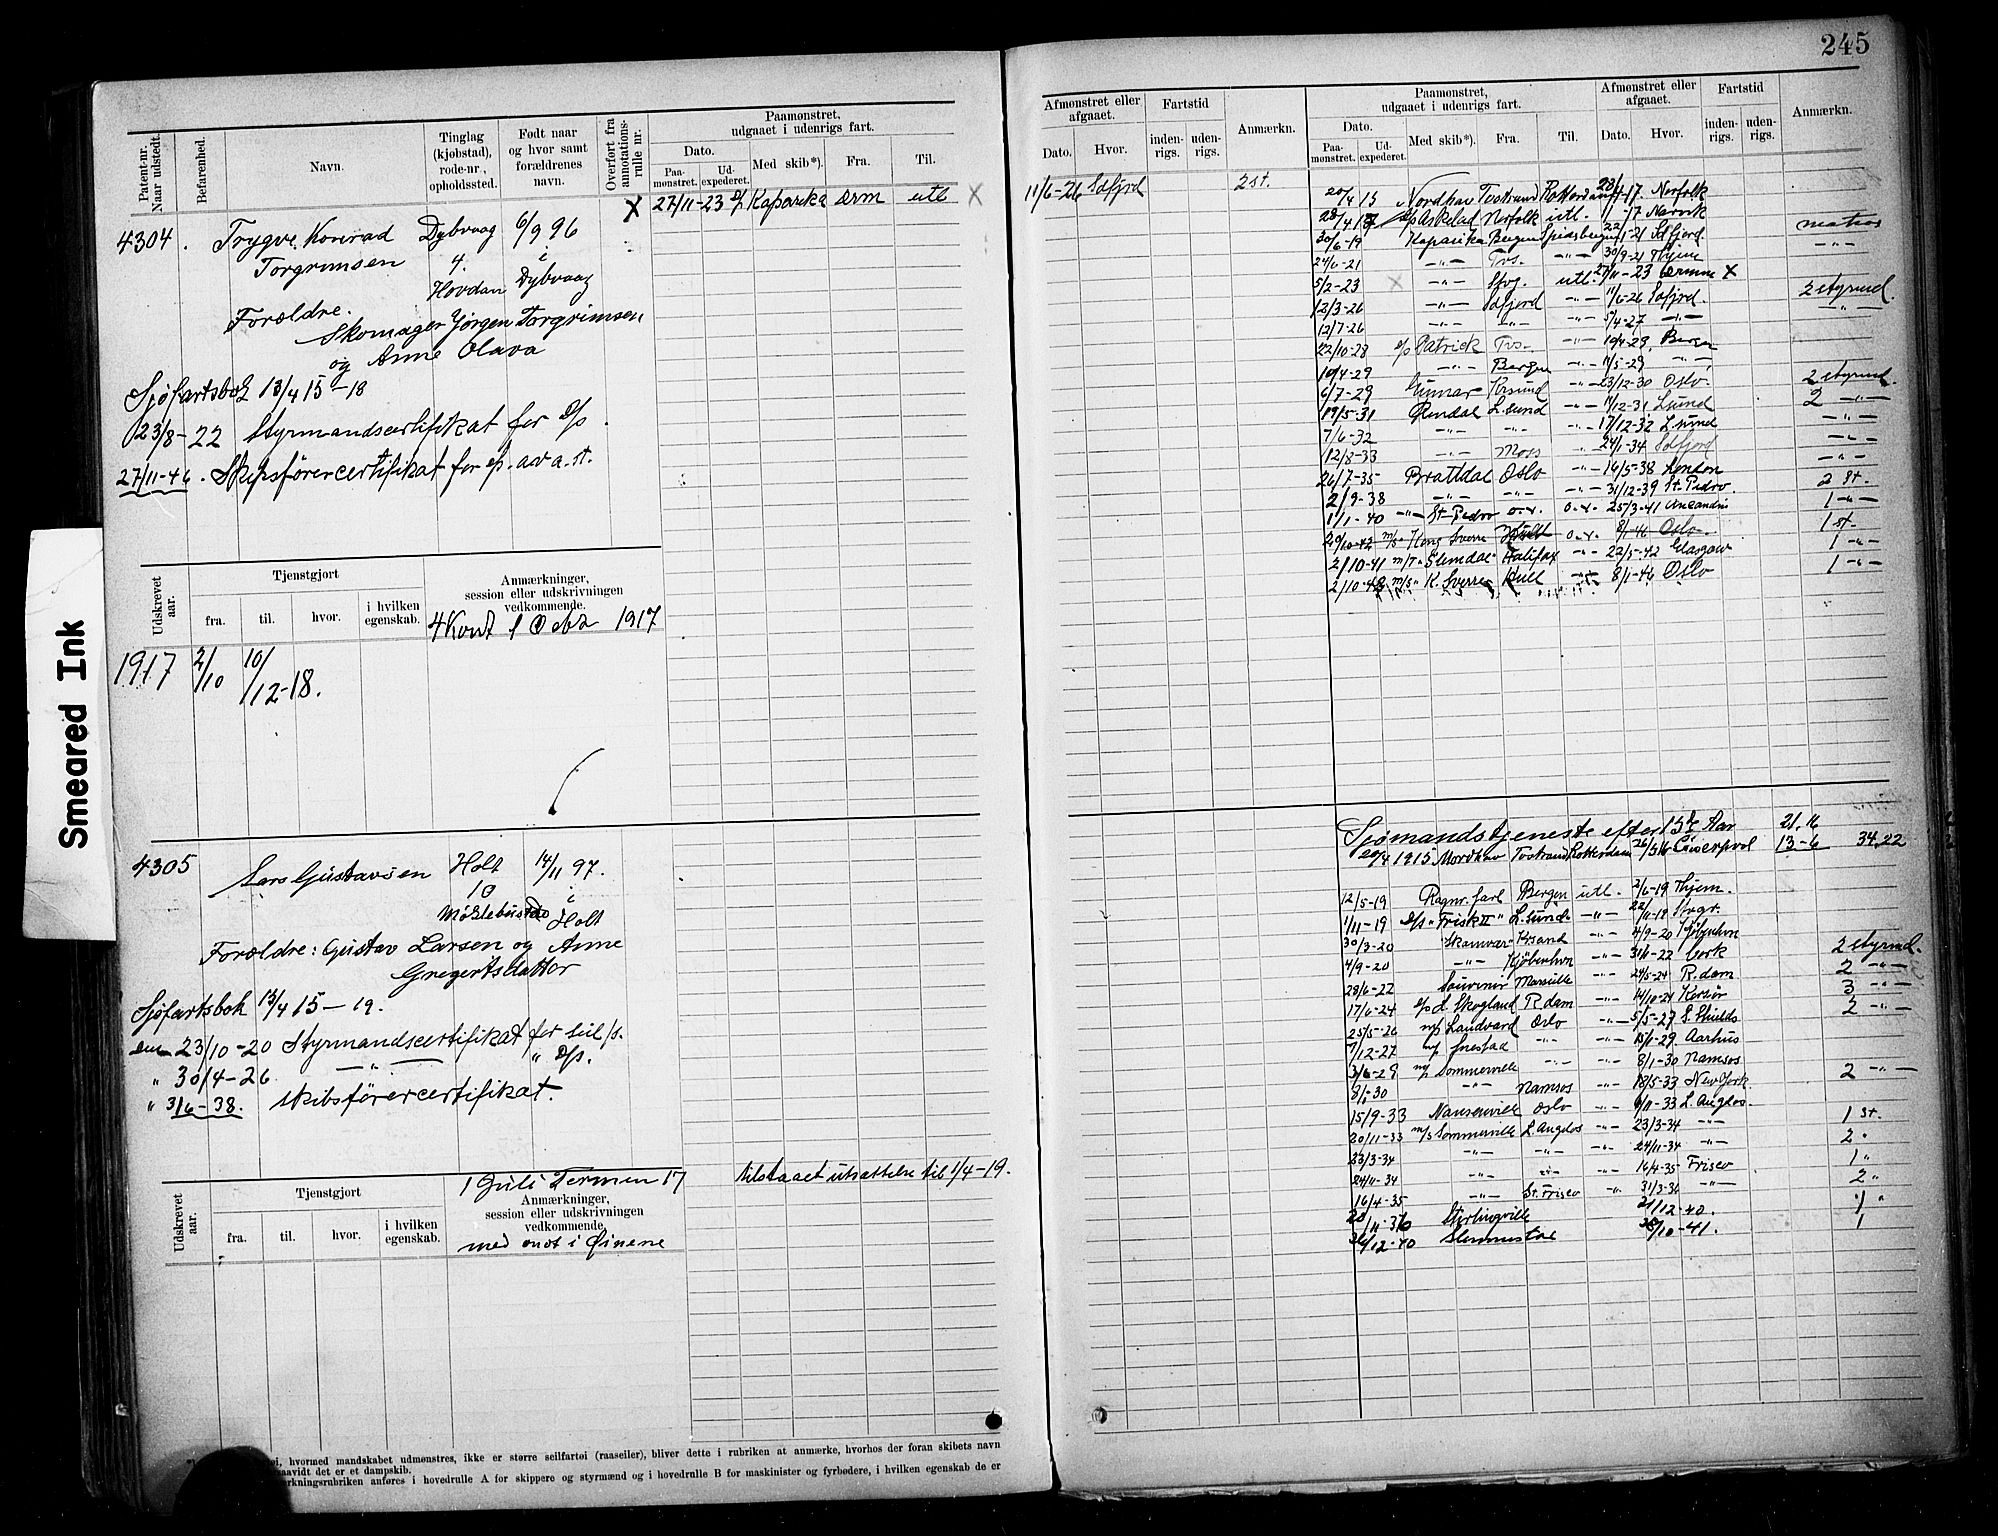 245
Smeared Ink
Patent-nr. Naar udstedt.
Befarenhed.
Navn.
Tinglag (kjøbstad), rode-nr., opholdssted.
Født naar og hvor samt forældrenes navn.
Overført fra annotations-rulle nr.
Paamønstret, udgaaet i udenrigs fart.
Dato.
Paa-mønstret.
Ud-expederet.
Med skib*).
Fra.
Til.
27/11-23 D/S Kaparika Arm utl X
4304. Trygve Konrad Dybvaag 6/9 96 X
Torgrimsen 4. i
Hovdan Dybvaag
Forældre.
Skomager Jørgen Torgrimsen
og Anne Olava
Sjøfartsbok 13/4 15-18
23/8-22 Styrmandscertifikat for D/S
27/11-46. Skipsførercertifikat for
Udskrevet aar.
Tjenstgjort
fra.
til.
hvor.
i hvilken egenskab.
Anmærkninger, session eller udskrivningen vedkommende.
4 Kont 1 Octb 1917
1917 2/10 10/12-18.
4305 Lars Gustavsen Holt 14/11 97.
10 i
Holt
Forældre: Gustav Larsen og Anne
Gregertsdatter
Sjøfartsbok 13/4 15-19.
23/10-20 Styrmandscertifikat for seil/s.
" 30/4-26 -"- " D/S.
" 3/6-38. Skibsførercertifikat.
1 Juli Termen 17 tilstaaet utsættelse til 1/4-19.
Udskrevet aar.
Tjenstgjort
fra.
til.
hvor.
i hvilken egenskab.
Anmærkninger, session eller udskrivningen vedkommende.
med
hvormed mandskabet udmønstres, ikke er større seilfartøi (raaseiler), bliver dette i rubriken at anmærke, hvorhos der foran skibets navn
det er et dampskib.
anføres i hovedrulle A for skippere og styrmænd og i hovedrulle B for maskinister og fyrbødere, i hvilken egenskab de er
Afmønstret eller afgaaet.
Dato.
Hvor.
Fartstid
inden-rigs.
uden-rigs.
Anmærkn.
Paamønstret, udgaaet i udenrigs fart.
Dato.
Paa-mønstret.
Ud-expederet.
Med skib*).
Fra.
Til.
Afmønstret eller afgaaet.
Dato.
Hvor.
Fartstid
inden-rigs.
uden-rigs.
Anmærkn.
11/6-26 Safjord 2 st.
20/4 15 Nordhav Tvstrand Rotterdam Norfolk
Askelad Norfolk utl. Narvik
30/6-19 Kaparika Bergen Spidsbergen matros
24/6-21 -"- Tvs. -"- 30/9-21 Hjem -"-
5/2-23 -"- utl. 27/11-23 X
12/3-26 -"- Safjord -"- 11/6-26 Safjord. 2 styrmd.
12/7-26 -"- -"- -"- 5/4-27 -"- -"-
22/10-28 D/S Patrick Tvs. -"- Bergen
10/4-29 -"- Bergen -"- 11/5-29 -"-
6/7-29 Gunnar Krsund -"- 23/12-30 Oslo. 2 styrmd.
19/5-31 L.sund -"- 11/12-31 Lsund 2 -"-
7/6-32 -"- -"- -"- 17/12-32 L.sund -"-
12/8-33 Moss 24/1-34 Safjord -"-
26/7-35 Brattdal Oslo -"- 16/5-38 London -"-
2/9-38 -"- -"- -"- 31/12-39 St. Pedro. 2 st.
1/1-40 -"- St. Pedro 25/3-41 1 -"-
m/s Kong Sverre 8/1-46 Oslo 1 st.
2/10-41 m/T Halifax -"- 22/5-42 Glasgow 1 -"-
m/s K. Sverre Hull -"- 8/1-46 Oslo 1 -"-
Sjømandstjeneste efter 15de Aar 21.16
20/4 1915 Nordhav Tvstrand Rotterdam Liverpool 13-6 34.22
12/5-19 Ragnv. Jarl Bergen utl. 2/6-19 Hjem.
1/11-19 D/S "Frisk II" L.sund -"-
30/3-20 Krsand -"- 4/9-20 Kjøbenhvn
4/9-20 -"- Kjøbenhvn -"- Cork 2 styrmd.
28/6-22 Souvenir Marseille -"- 24/5-24 R.dam 2 -"-
17/6-24 D/S L. Skogland R.dam -"- 14/10-24 Korsør 3 -"-
25/5-26 Landvard Oslo -"- 5/5-27 S. Shields 2 -"-
7/12-27 -"- -"- Aarhus
3/6-29 Sommerville -"- 8/1-30 Namsos
8/1-30 -"- Namsos -"- 18/5-33 New York. 2 -"-
15/9-33 Nansenville Oslo -"- L. Anglos.
20/11-33 m/s Sommerville L. Anglos -"- 23/3-34 -"- 1 st.
23/3-34 -"- -"- -"- 24/11-34 -"- 2 "
24/11-34 -"- -"- -"- 16/4-35 Frisco 1 "
16/4-35 -"- St. Frisco -"- 31/3-36 -"- 2 "
Stirlingville 21/12-40. 1 "
Slemmestad 1